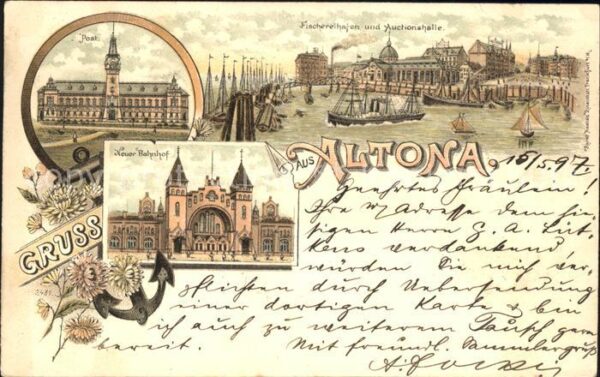 Post.
Fischereihafen und Auctionshalle.
Neuer Bahnhof
GRUSS
AUS
ALTONA.
15/5 97.
Geehrtes Fräulein!
Ihre Adresse dem hie-
sigen Herrn G. A. Lüt-
kens verdankend
würden Sie mich ver-
pflichten durch Uebersendung
einer dortigen Karte & bin
ich auch zu weiterem Tausch gern
bereit. Mit freundl. Sammlergruß
A.